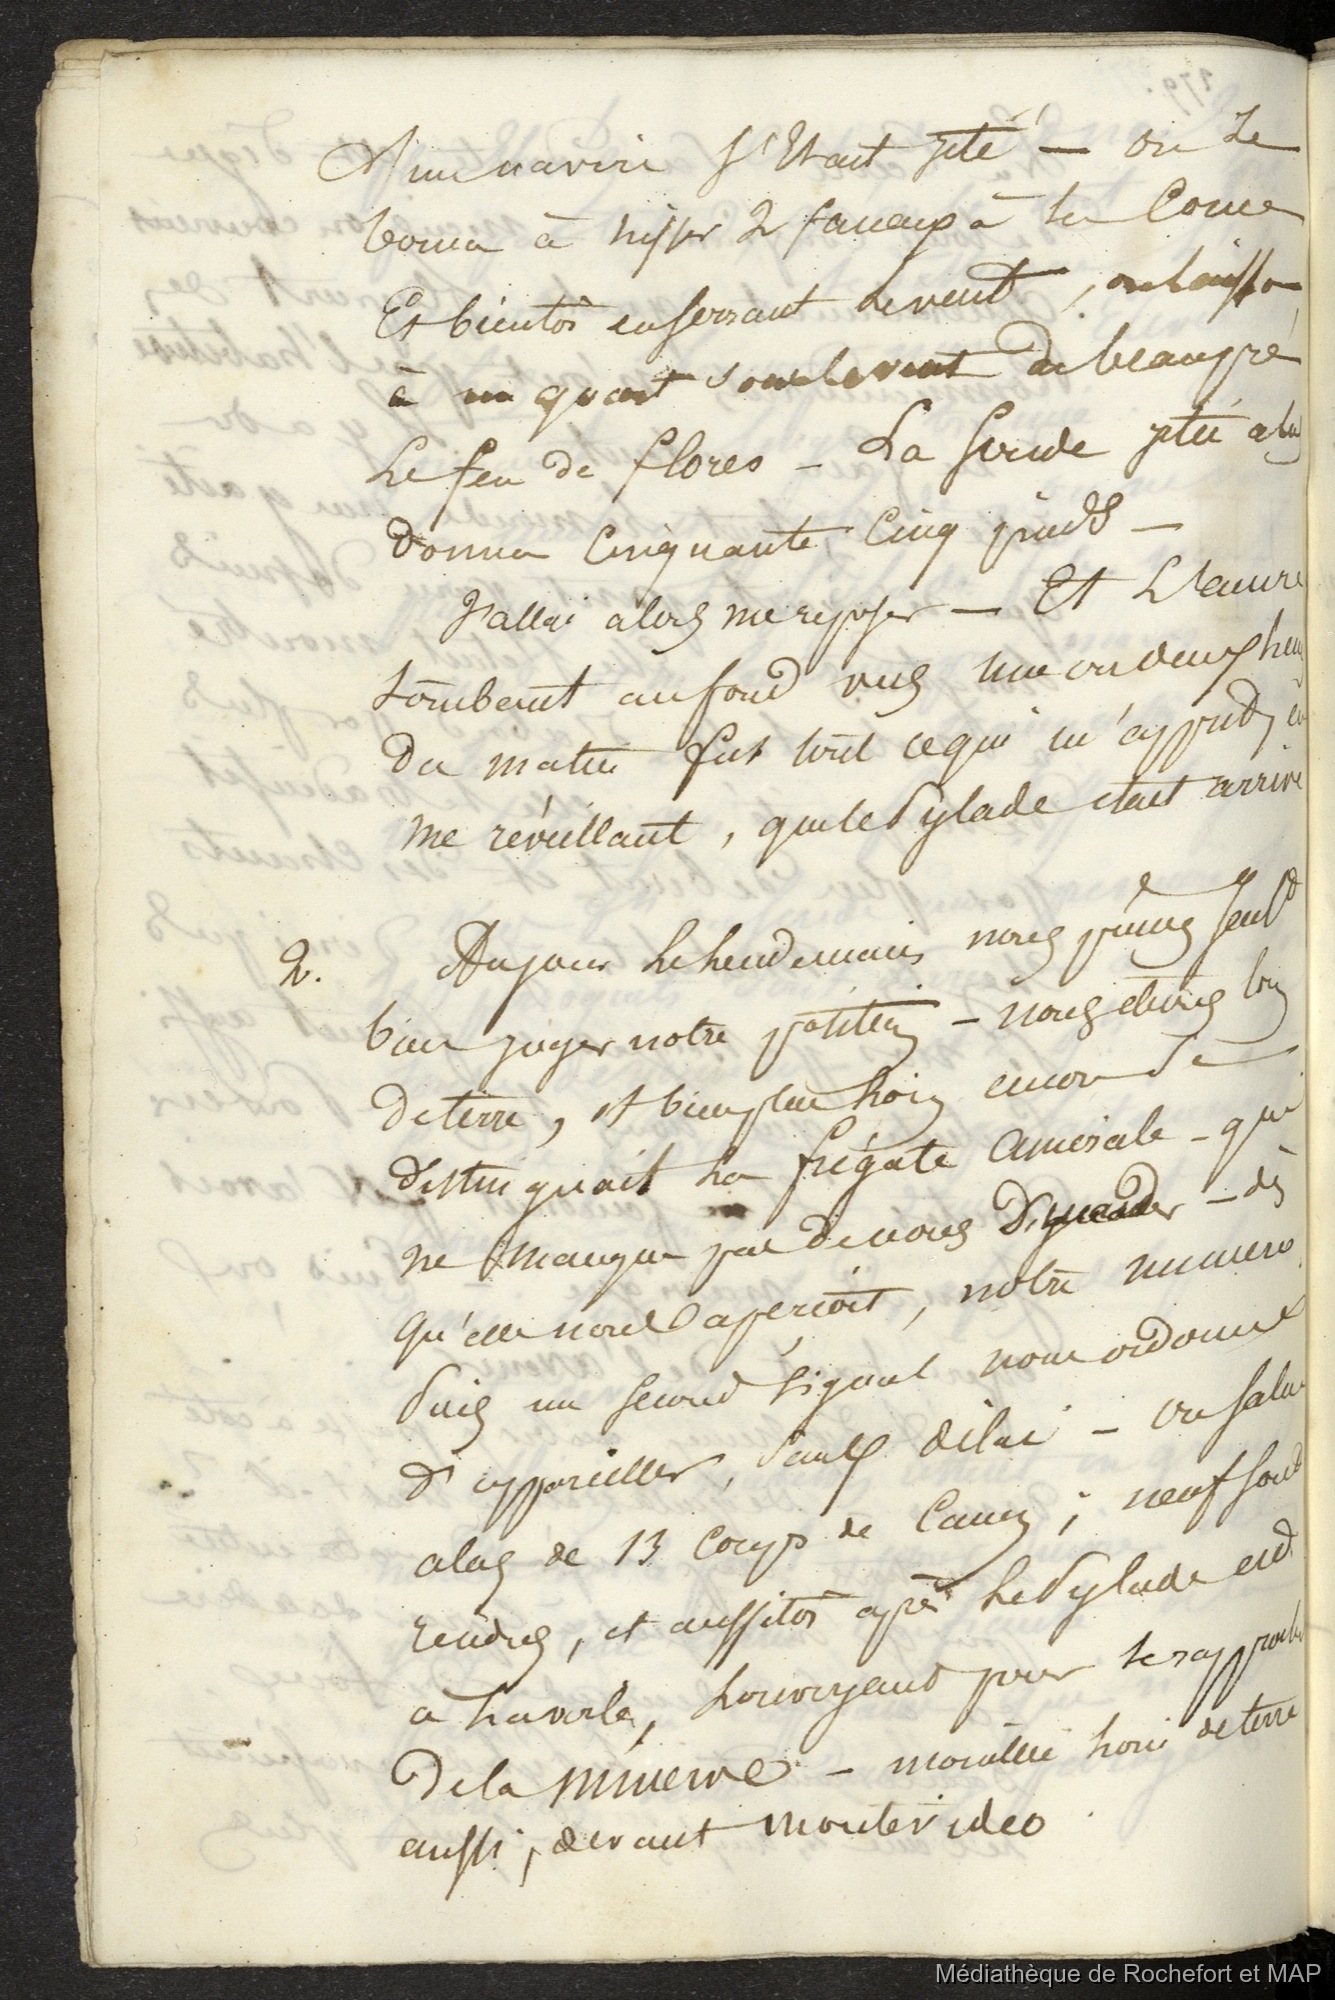 un navire s'Etait jeté — on se
borna à hisser 2 fanaux à la Corne
Et bientôt en serrant le vent, on laissa
à un quart sous le vent du beaupré
Le feu de flores — La sonde jetée alors
donna Cinquante Cinq pieds —
J'allai alors me reposer — Et L'ancre
tombant au fond vers une ou deux heures
Du matin fut tout ce qui m'apprit, en
me réveillant, que le Pylade était arrivé
2. Au jour le lendemain nous pûmes
bien juger notre position — nous étions loin
de terre, et bien plus loin encore Se
distinguait La frégate Amirale — qui
ne manqua pas de nous Demander — dès
qu'elle nous aperçoit, notre numero
Puis un second signal nous ordonne
d'appareiller, sans délai — on salue
alors de 13 coups de Canon ; neuf sont
rendus, et aussitôt après Le Pylade est
à la voile, Louvoyant pour se rapprocher
De la Minerve — mouillée loin de terre
aussi, devant Montevideo
Médiathèque de Rochefort et MAP